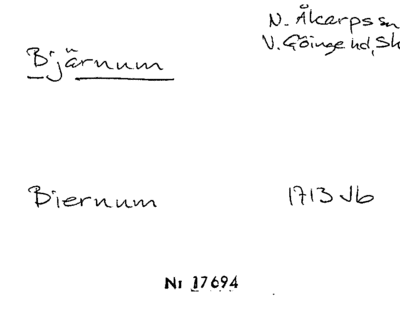 N. Åkarps sn
Bjärnum
V. Göinge hd, Sk
Biernum
1713 Jb
Nr 17694